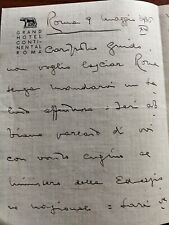 GRAND
HOTEL
CONTI-
NENTAL
ROMA
Roma 9 maggio
Carissimo Guido
non voglio lasciar Roma
senza mandarvi un sa
luto affettuoso = Ieri ab
biamo parlato di voi
con vostro cugino al
ministero della Educazio
ne nazionale =